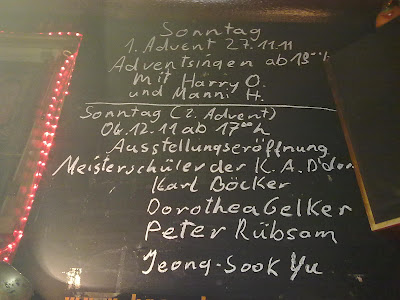 Sonntag
1. Advent 27.11.11
Adventsingen ab
Mit Harry O.
und Manni H.
Sonntag (2. Advent)
04.12.11 ab 17⁰⁰h
Ausstellungseröffnung
Meisterschüler der K. A. D'dorf
Karl Böcker
Dorothea Gelker
Peter Rübsam
Jeong-Sook Yu